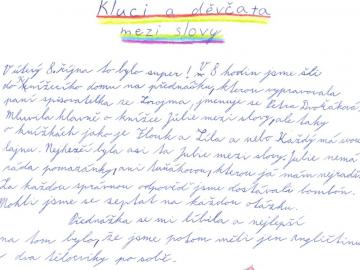 Kluci a děvčata
mezi slovy
V úterý 8. října to bylo super! V 8 hodin jsme šli
do Knižního domu na přednášku, kterou vypravovala
paní spisovatelka ze Znojma, jmenuje se Petra Dvořáková.
Mluvila hlavně o knížce Julie mezi slovy, ale taky
o knížkách jako je Flouk a Líla a nebo Každý má svou
lajnu. Nejhezčí byla asi ta Julie mezi slovy. Julie nemá
ráda pomazánky, ani tuňákovou, kterou já mám nejradši.
Za každou správnou odpověď jsme dostávali bonbón.
Mohli jsme se zeptat na každou otázku.
Přednáška se mi líbila a nejlepší
na tom bylo, že jsme potom měli jen angličtinu
a dva tělocviky po sobě.